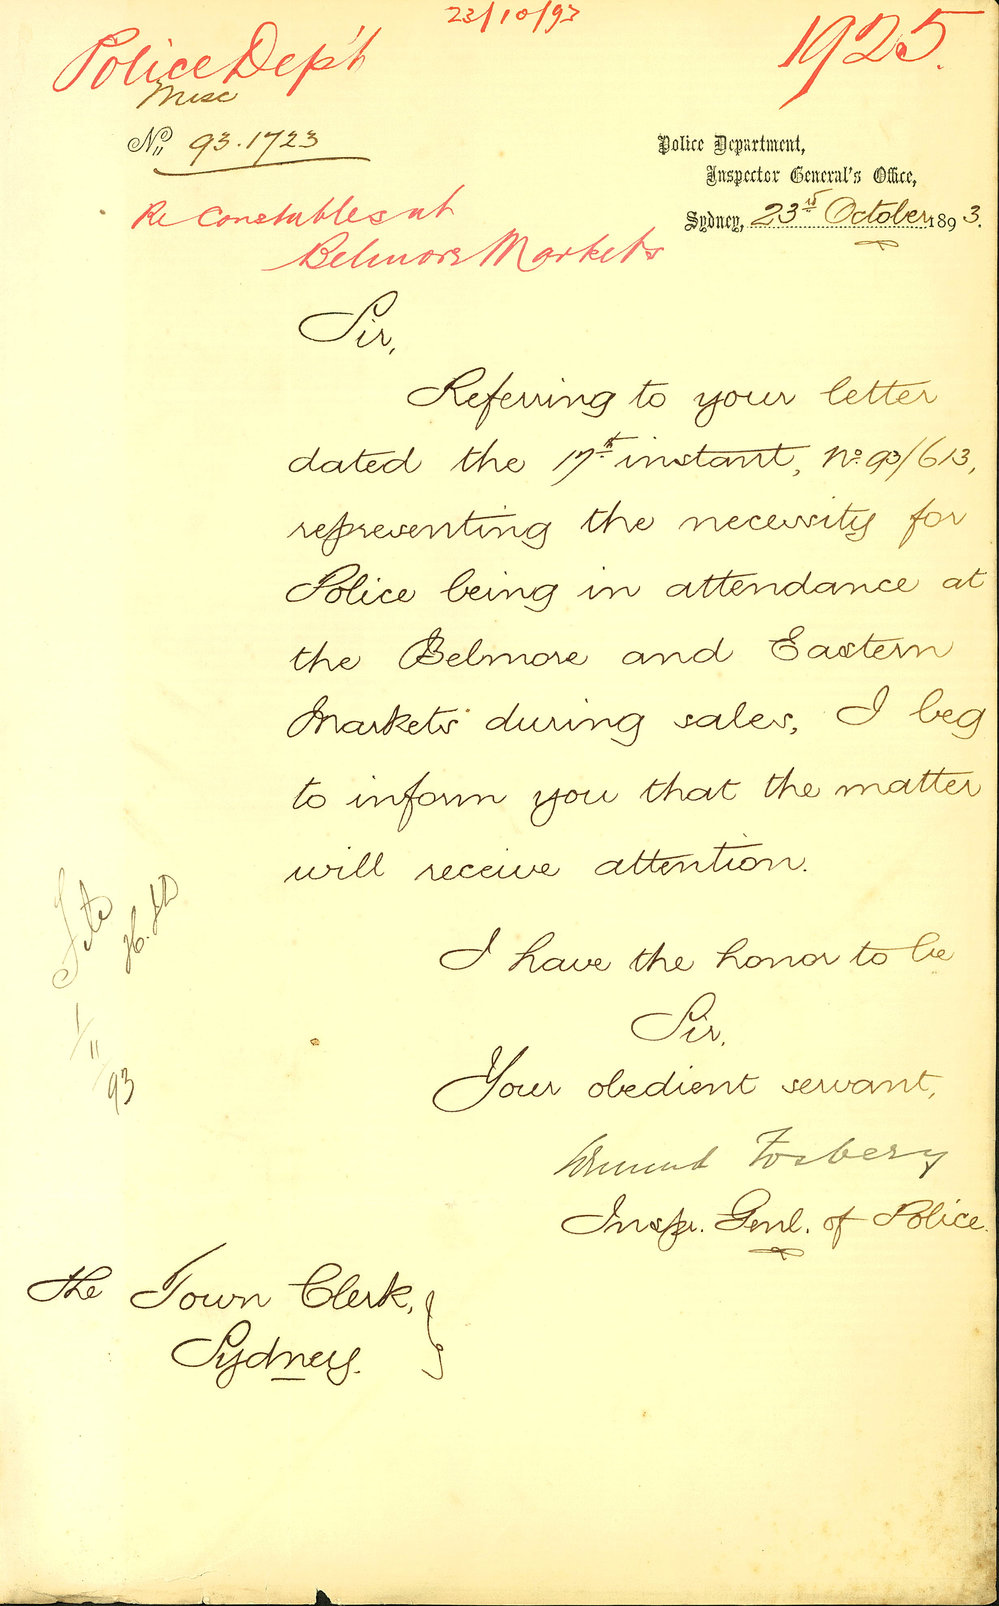 23/10/93
1925.
Police Dep't
Misc
No. 93.1723
Police Department,
Inspector General's Office,
Sydney, 23rd October 1893.
Re Constables at
Belmore Markets
Sir,
Referring to your letter
dated the 17th instant, No. 93/613,
representing the necessity for
Police being in attendance at
the Belmore and Eastern
Markets during sales, I beg
to inform you that the matter
will receive attention.
I have the honor to be
Sir,
Your obedient servant,
Edmund Fosbery
Inspr. Genl. of Police.
The Town Clerk,
Sydney.
File
1/11/93